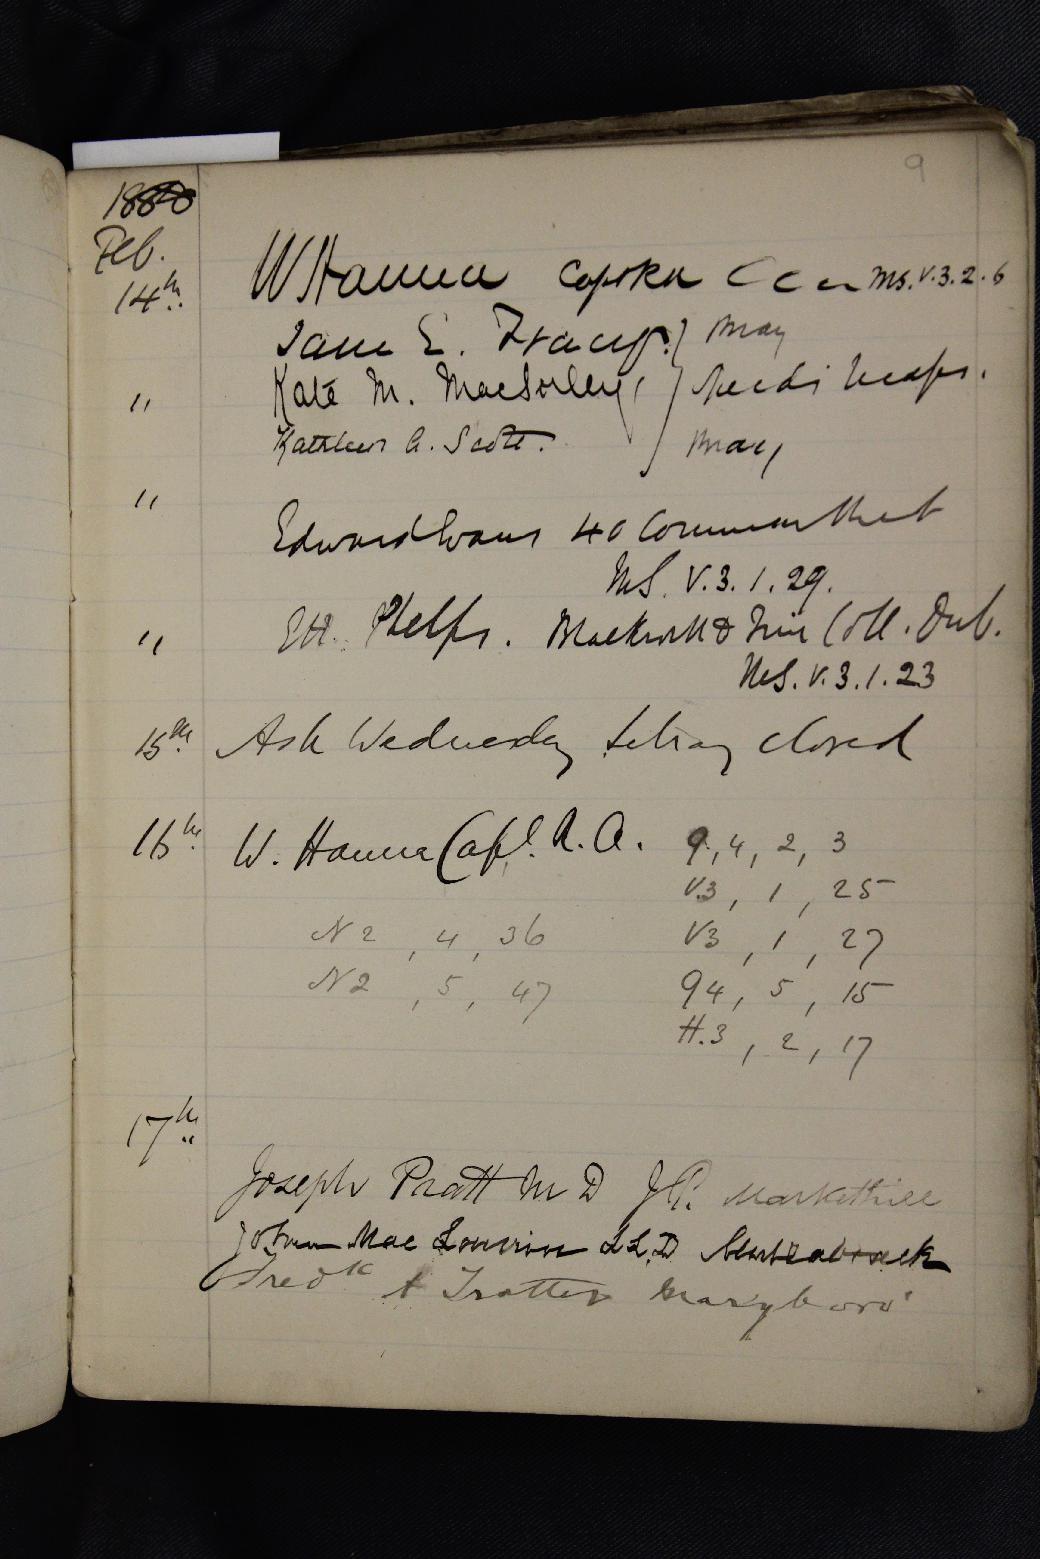 9
1888
Feb.
14th W Hanna Capt RA MS. V.3.2.6
Jane E. Tracy. } May
" Kate M. MacSorley, } Swift's
Kathleen A. Scott. } May
" Edward Evans 40 Cornmarket
MS. V.3.1.29.
" Phelps. & Trin Coll. Dub.
MS. V.3.1.23
15th Ash Wednesday Library closed
16th W. Hanna Capt. R.A. 9,4, 2, 3
V.3, 1, 25
N2, 4, 36 V3, 1, 27
N2, 5, 47 94, 5, 15
H.3, 2, 17
17th
Joseph Pratt MD J.P. Markethill
John Mac LLD
Fredk A Trotter Maryboro'